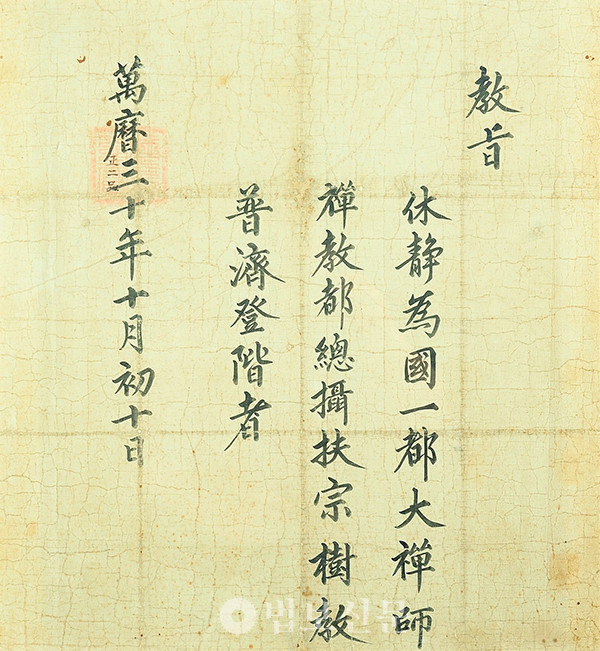 教旨
休静為國一都大禪師
禪教都總攝扶宗樹教
普濟登階者
萬曆三十年十月初十日
正二品
법보신문